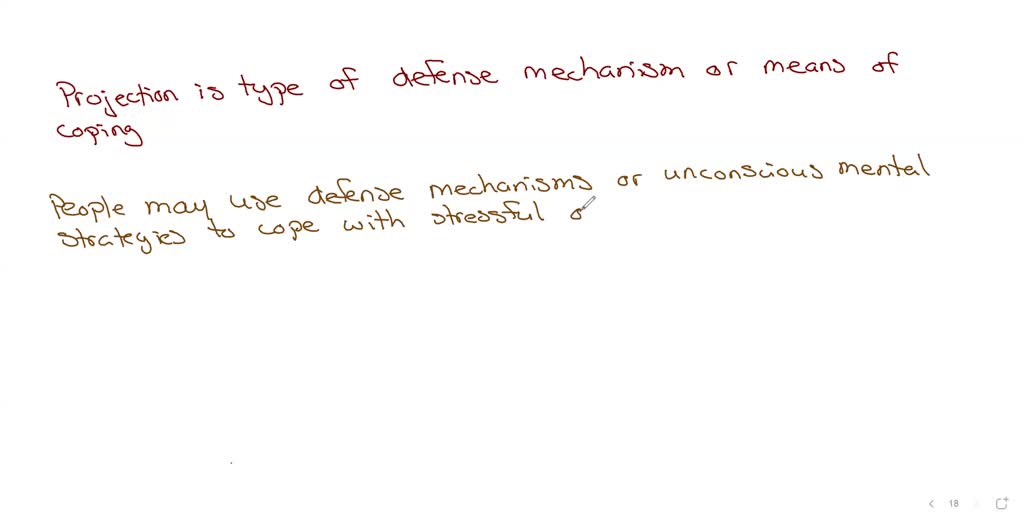 Projection is type of defense mechanism or means of
coping
People may use defense mechanisms or unconscious mental
strategies to cope with stressful o
18